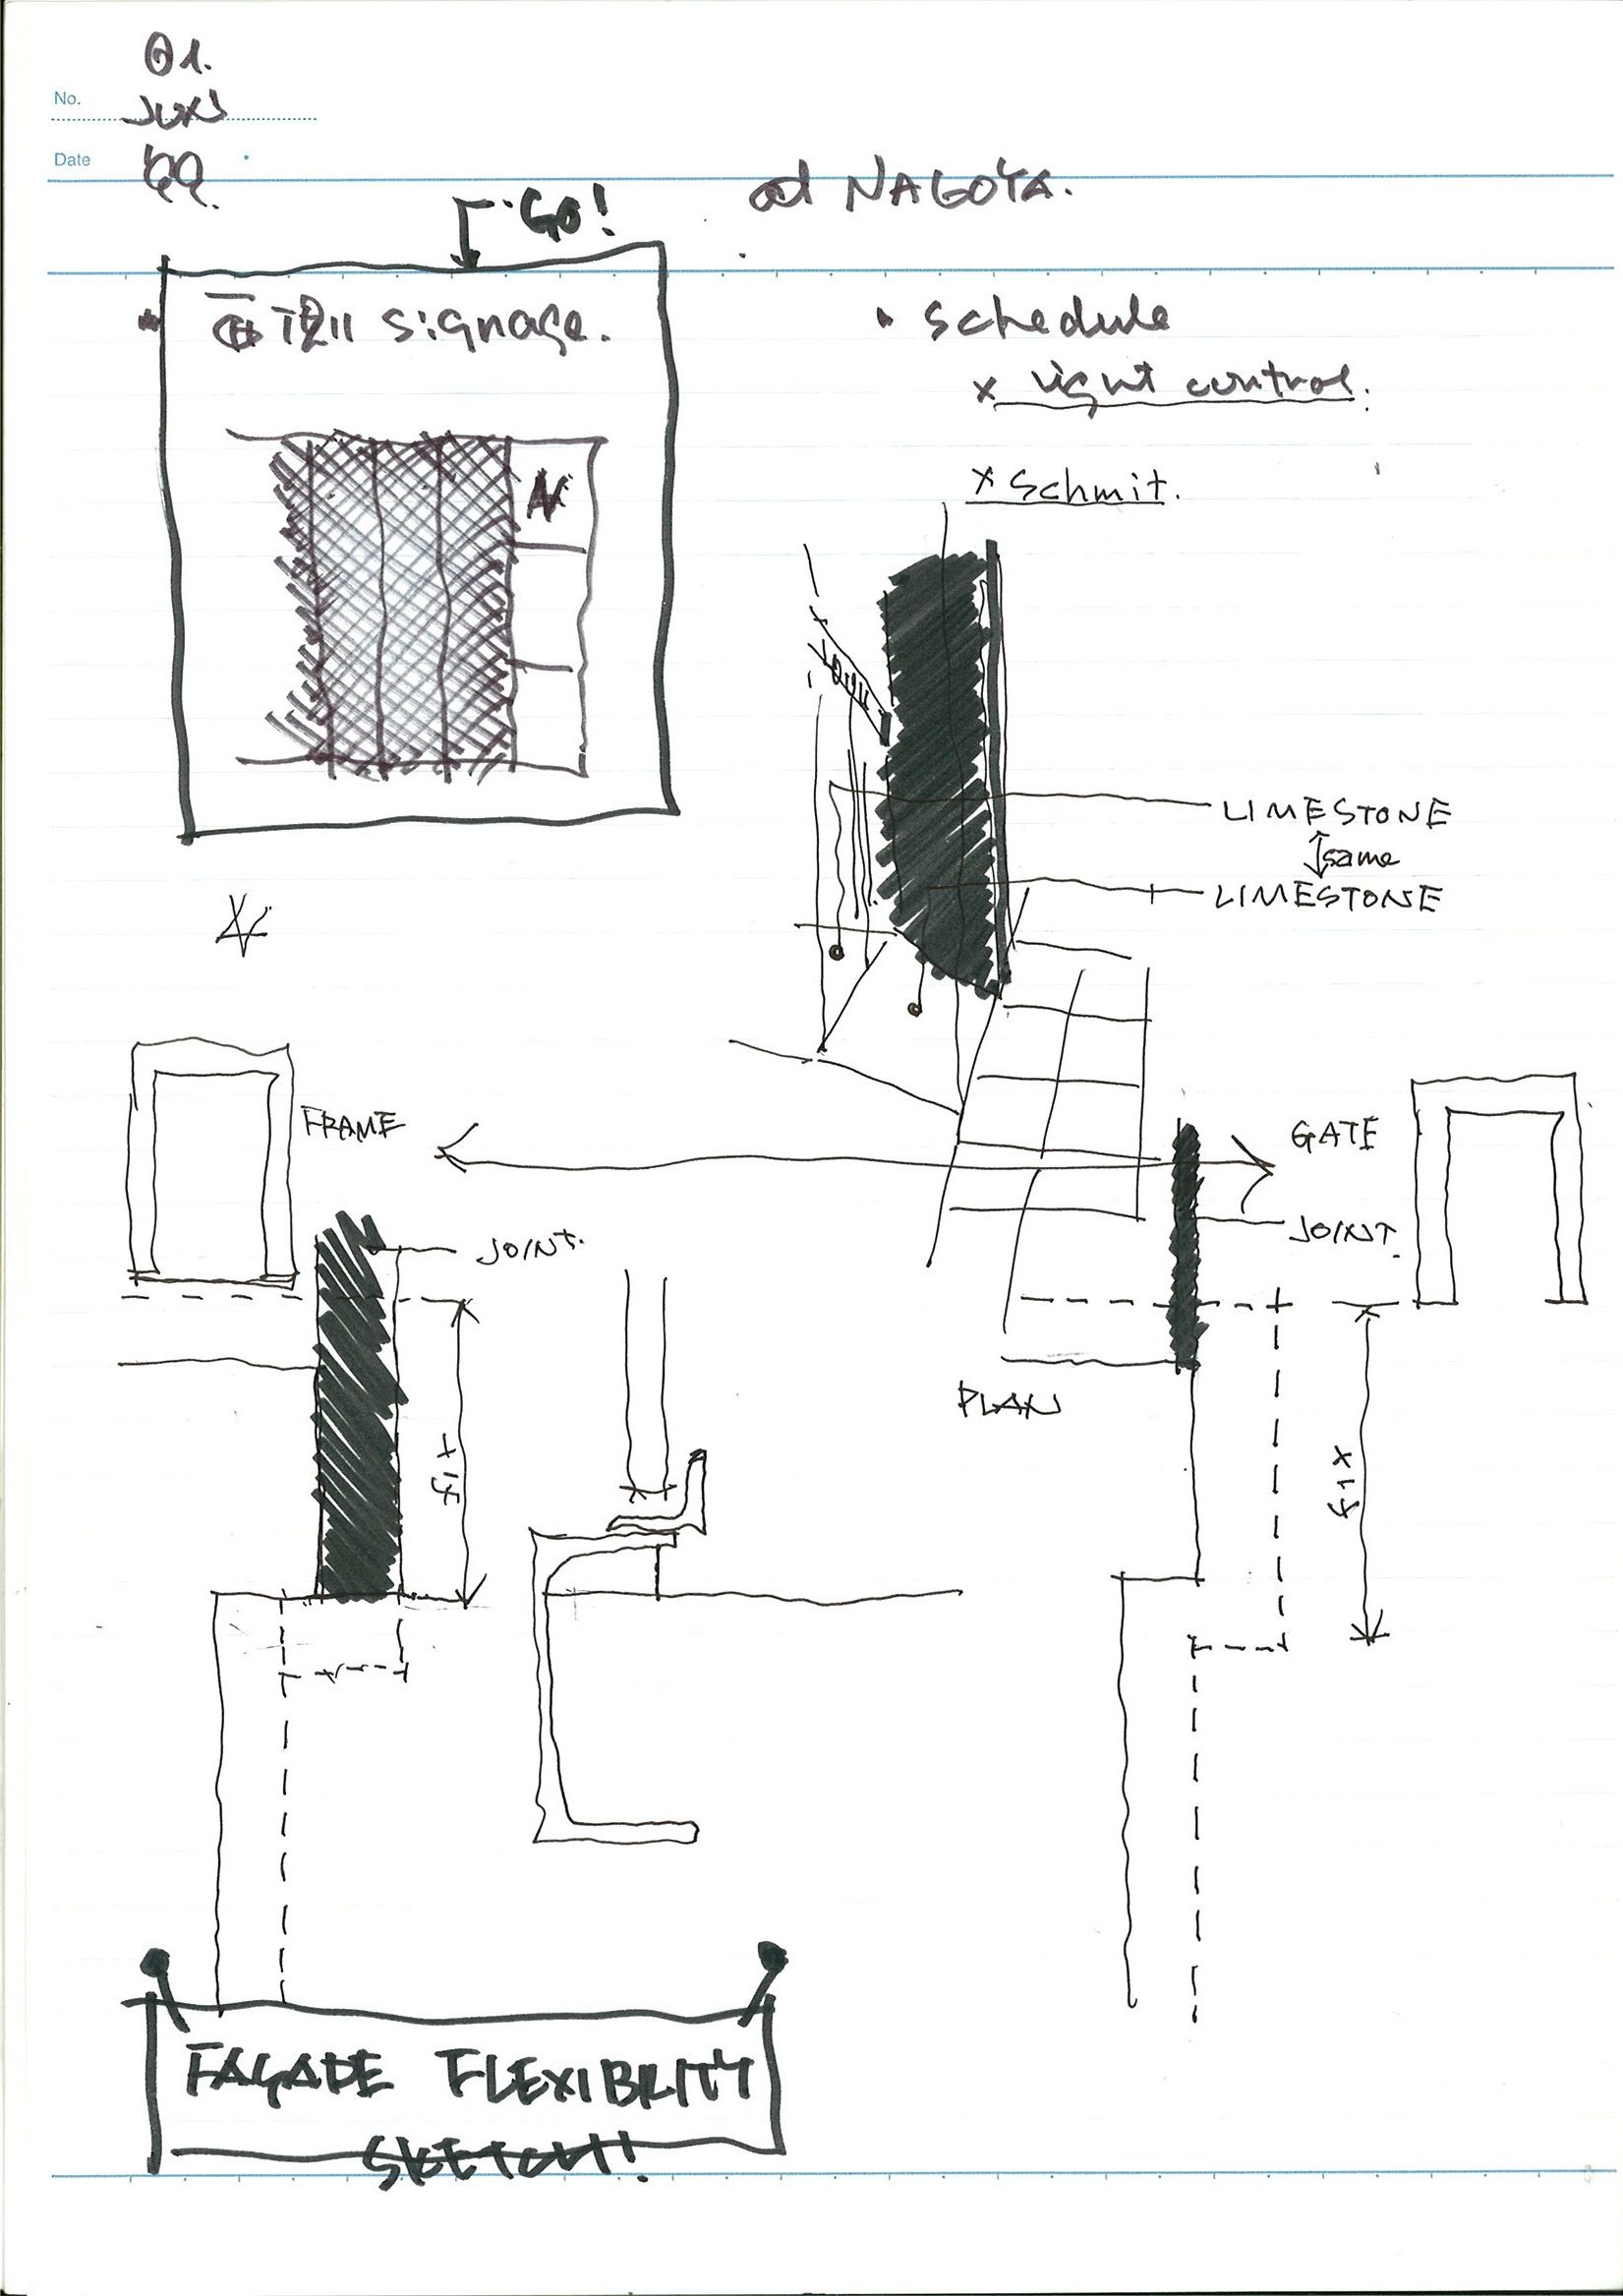 01.
No.
JUN
Date
'99.
at NAGOYA.
Go!
signage.
• schedule
× light control.
× Schmit.
LIMESTONE
same
LIMESTONE
FRAME
GATE
JOINT.
JOINT.
PLAN
FAÇADE FLEXIBRITY
SKETCH!